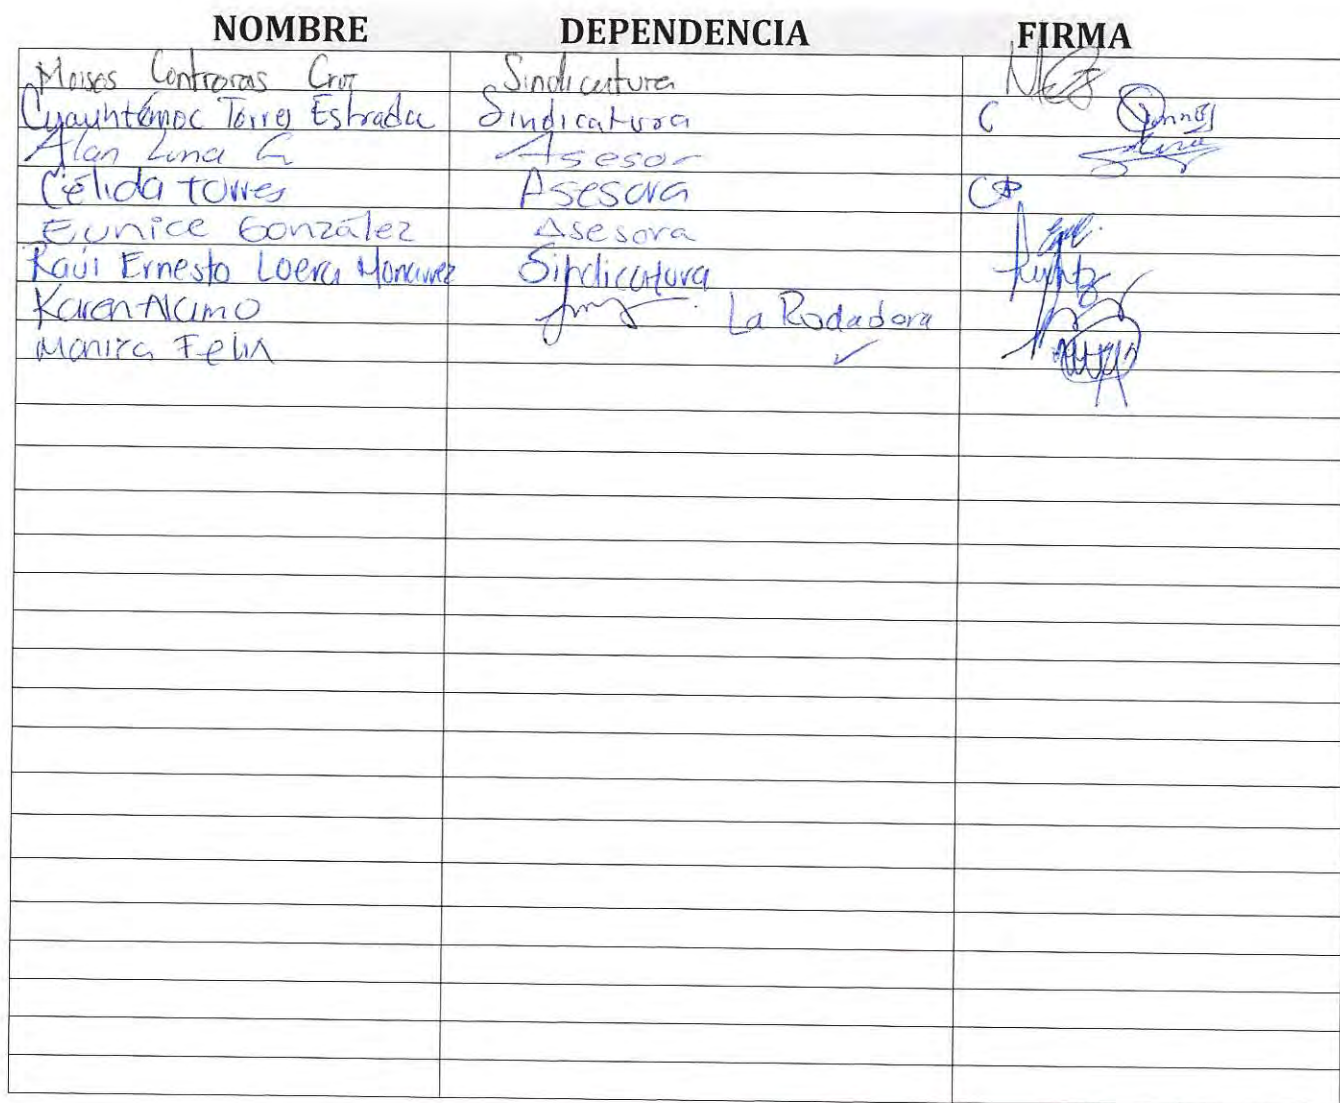 NOMBRE DEPENDENCIA FIRMA
Moises Contreras Cruz Sindicatura
Cuauhtémoc Torres Estrada Sindicatura C
Alan Luna G Asesor
Célida torres Asesora
Eunice González Asesora
Raúl Ernesto Loera Sindicatura
Karen Alamo La Rodadora
Monica Felix